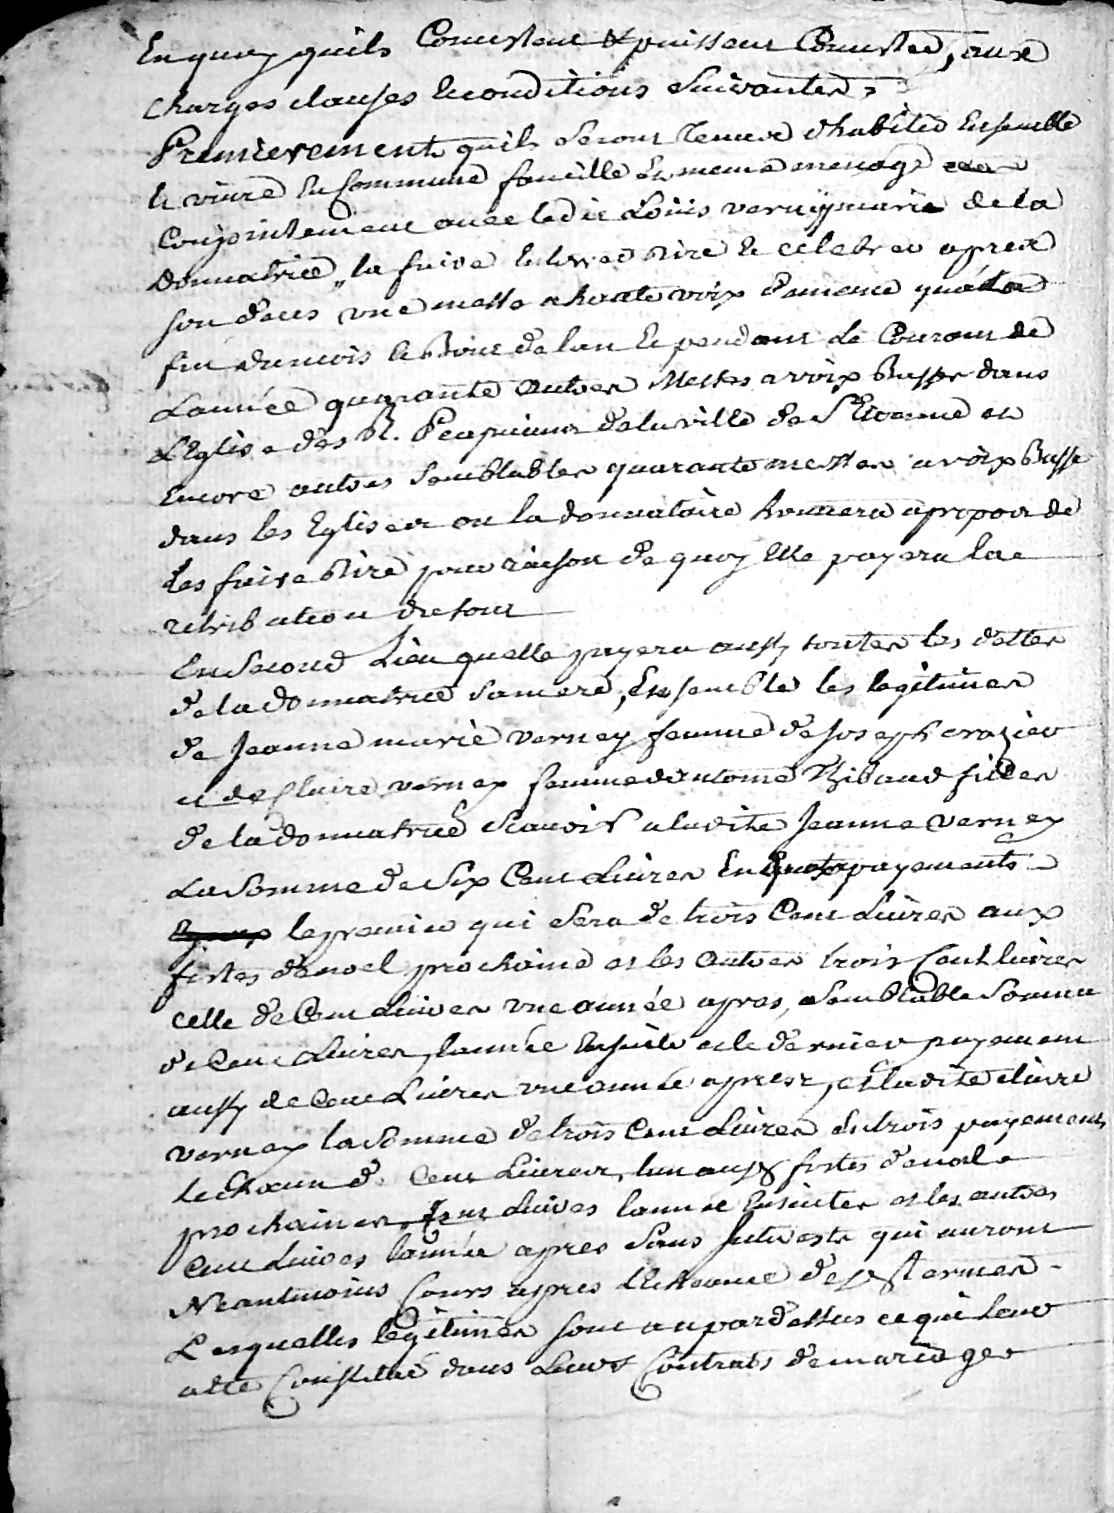 En quoy quils Consistent & puissent Consister, aux
charges clauses & conditions suivantes,
Premierement quils seront tenus d'habiter Ensemble
& vivre En Commune famille & meme menage
Conjointement avec ledit Louis verney mari de la
Donnatrice, la faire Enterrer dire & celebrer apres
son deces une messe a haute voix
fin du mois & Bout de lan & pendant le Courant de
Lannée quarante autres Messes a voix Basse dans
L'Eglise des R. P capucins de la ville de St Etienne et
Encore autres semblables quarante messes a voix Basse
dans les Eglises ou la donnataire trouvera a propos de
les faire dire pour raison de quoy Elle payera la
retribution du tout
En second Lieu quelle payera aussy toutes les dettes
de la donnatrice sa mere, Ensemble les legitimes
de Jeanne marie verney femme de Joseph crozier
et de Claire verney femme d'antoine Thibaud filles
de la donnatrice scavoir a ladite Jeanne verney
La somme de six Cent Livres En payements
le premier qui sera de trois Cent Livres aux
fetes de noel prochaine et les autres trois Cent livres
celle de Cent Livres une année apres, semblable somme
de Cent Livres, lannée Ensuite et le dernier payement
aussy de Cent Livres une année apres, et ladite claire
verney la somme de trois Cent Livres En trois payements
de Chacun de Cent Livres, lun aux fetes de noel
prochaines, Cent Livres lannée Ensuite et les autres
Cent Livres lannée apres sans Interests qui auront
Neantmoins Cours apres l'Echeance des termes
Lesquelles legitimes sont au par dessus ce qui leur
a eté Constitué dans Leurs Contrats de mariage